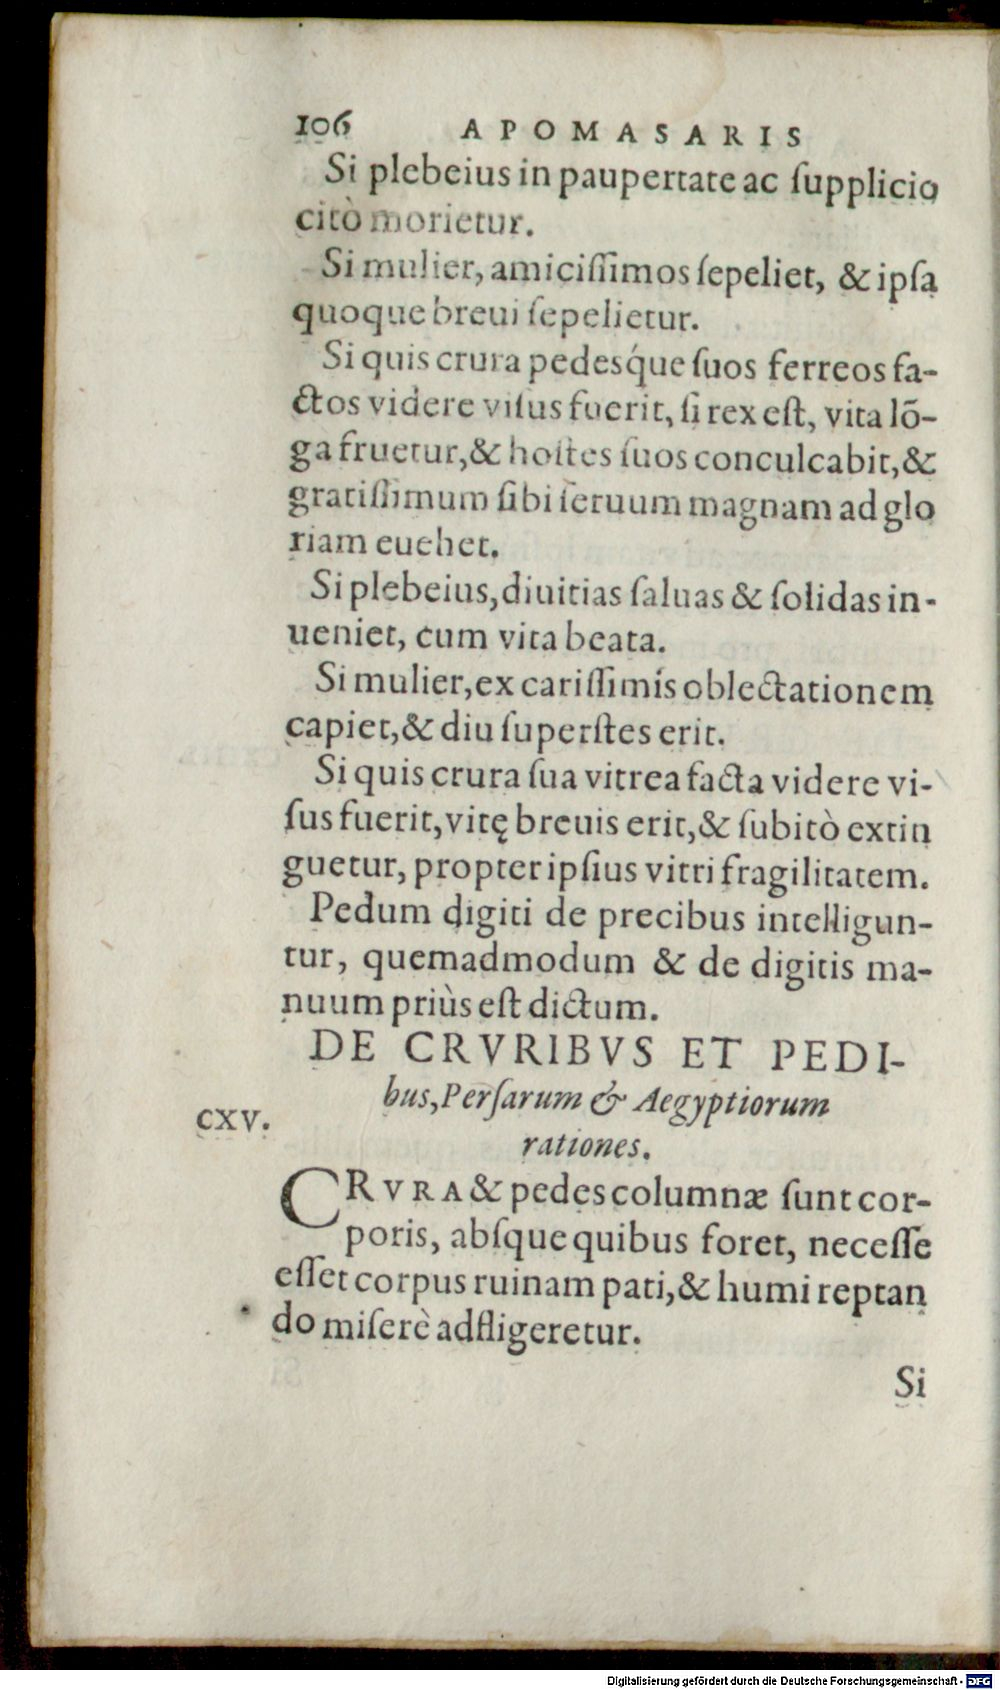 106 APOMASARIS
Si plebeius in paupertate ac ſupplicio
citò morietur.
Si mulier, amiciſſimos ſepeliet, & ipſa
quoque breui ſepelietur.
Si quis crura pedesq́ue ſuos ferreos fa-
ctos videre viſus fuerit, ſi rex eſt, vita lō-
ga fruetur, & hoſtes ſuos conculcabit, &
gratiſſimum ſibi ſeruum magnam ad glo
riam euehet.
Si plebeius, diuitias ſaluas & ſolidas in-
ueniet, cum vita beata.
Si mulier, ex cariſſimis oblectationem
capiet, & diu ſuperſtes erit.
Si quis crura ſua vitrea facta videre vi-
ſus fuerit, vitę breuis erit, & ſubitò extin
guetur, propter ipſius vitri fragilitatem.
Pedum digiti de precibus intelligun-
tur, quemadmodum & de digitis ma-
nuum priùs eſt dictum.
DE CRVRIBVS ET PEDI-
bus, Perſarum & Aegyptiorum
CXV.
rationes.
CRVRA & pedes columnæ ſunt cor-
poris, abſque quibus foret, neceſſe
eſſet corpus ruinam pati, & humi reptan
do miſerè adfligeretur.
Si
Digitalisierung gefördert durch die Deutsche Forschungsgemeinschaft - DFG